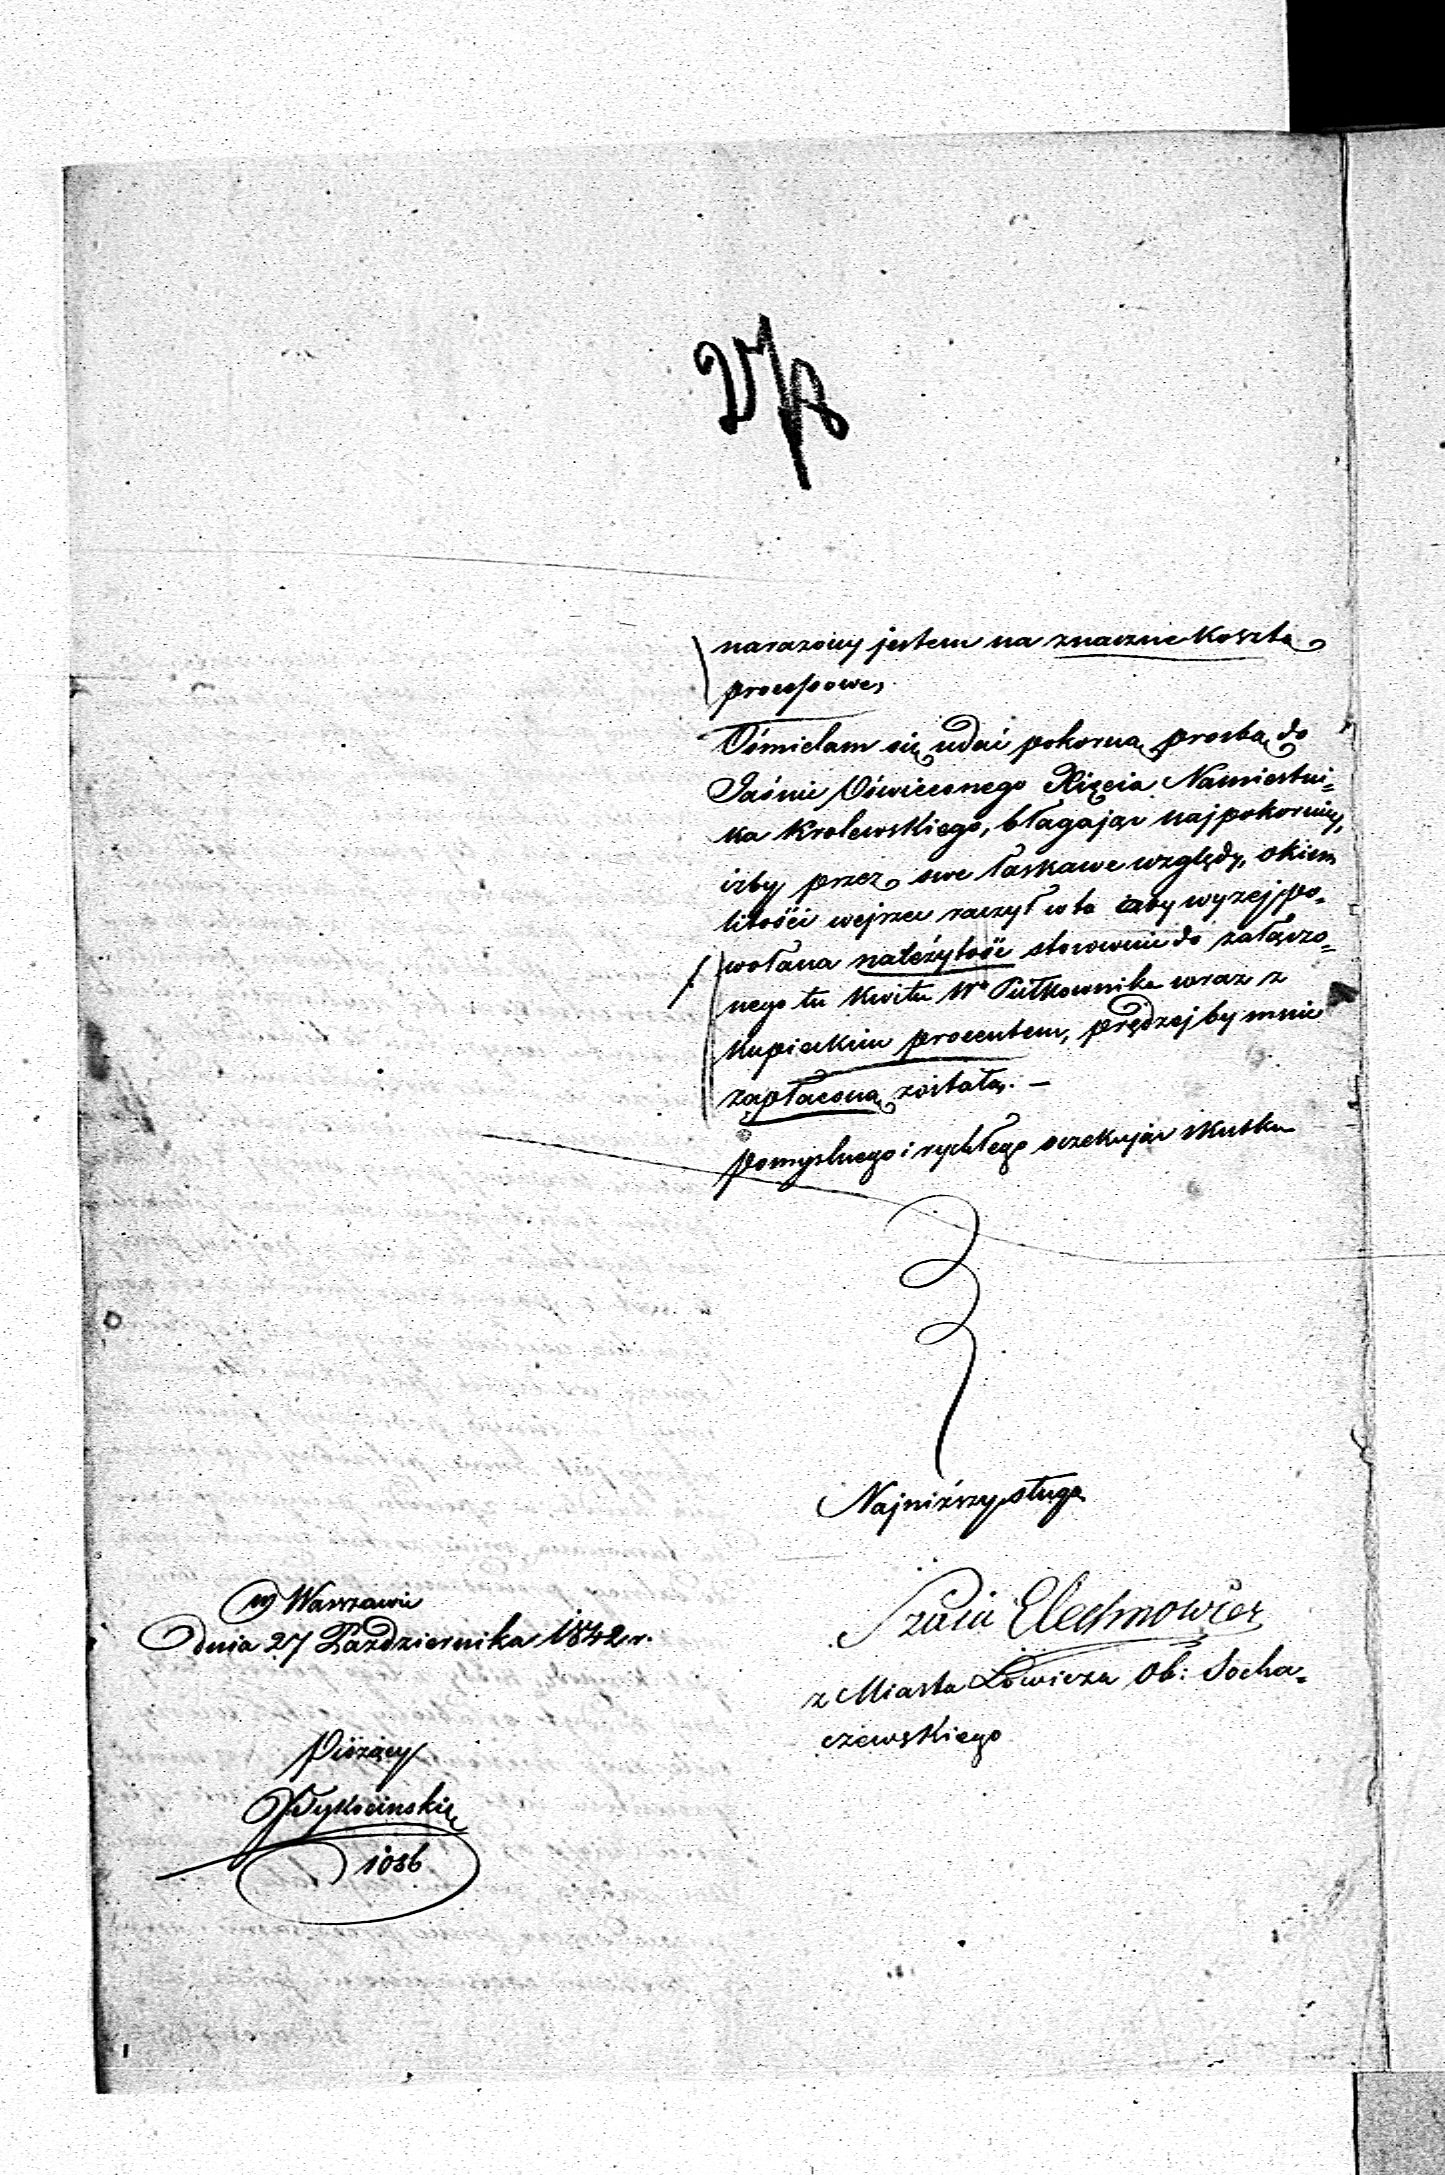 narażony jestem na znaczne koszta
processowe,
Ośmielam się udać pokorną prośbą do
Jaśnie Oświeconego Xięcia Namiestni-
ka Krolewskiego, błagając najpokorniej,
iżby przez swe łaskawe względy, okiem
litości wejrzeć raczył w to iżby wyżej po-
wołana należytość stosownie do załączo-
nego tu kwitu Wo Pułkownika wraz z
kupieckim procentem, prędzej by mnie
zapłaconą została. —
pomyslnego i rychłego oczekując skutku
Najniższy sługa
Szaia Elechnowicz
z Miasta Łowicza Ob: Socha-
czewskiego
w Warszawie
dnia 27 Października 1842 r.
Piszący
Wysocinski
1036